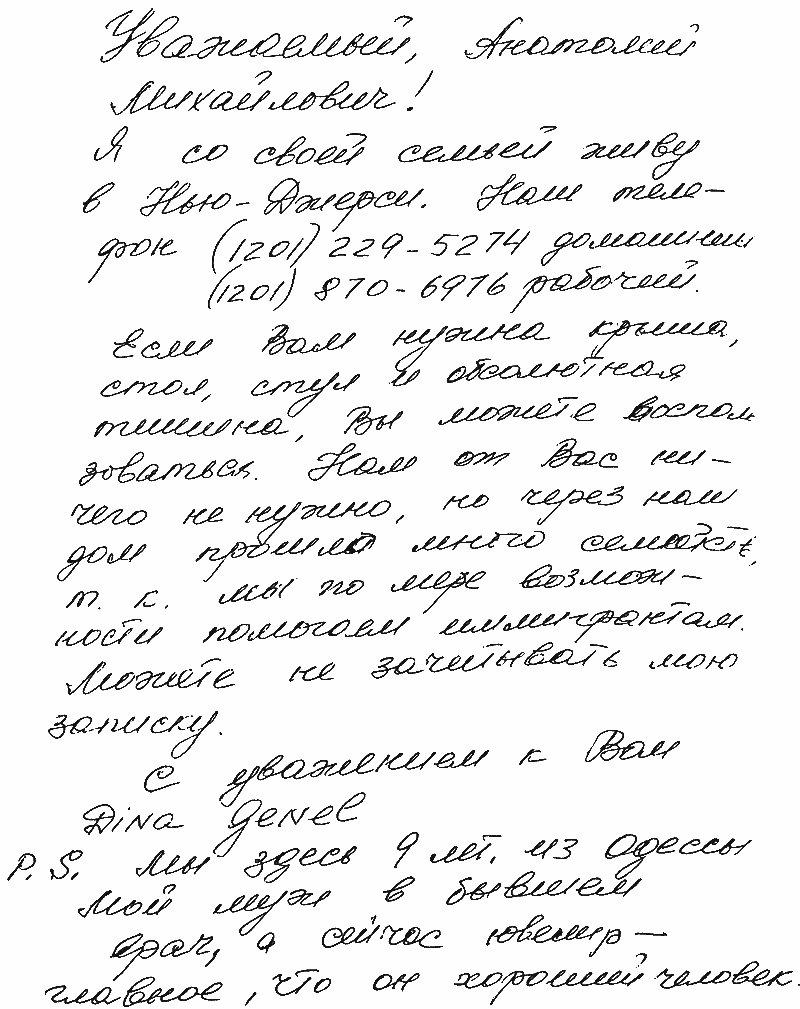 Уважаемый, Анатолий
Михайлович!
Я со своей семьей живу
в Нью-Джерси. Наш теле-
фон (1201) 229-5274 домашний
(1201) 870-6976 рабочий.
Если Вам нужна крыша,
стол, стул и абсолютная
тишина, Вы можете воспол
зоваться. Нам от Вас ни-
чего не нужно, но через наш
дом прошло много
т. к. мы по мере возмож-
ности помогаем иммигрантам.
Можете не зачитывать мою
записку.
С уважением к Вам
Dina Genel
P.S. Мы здесь 9 лет, из Одессы
Мой муж в бывшем
врач, а сейчас ювелир —
главное, что он хороший человек.